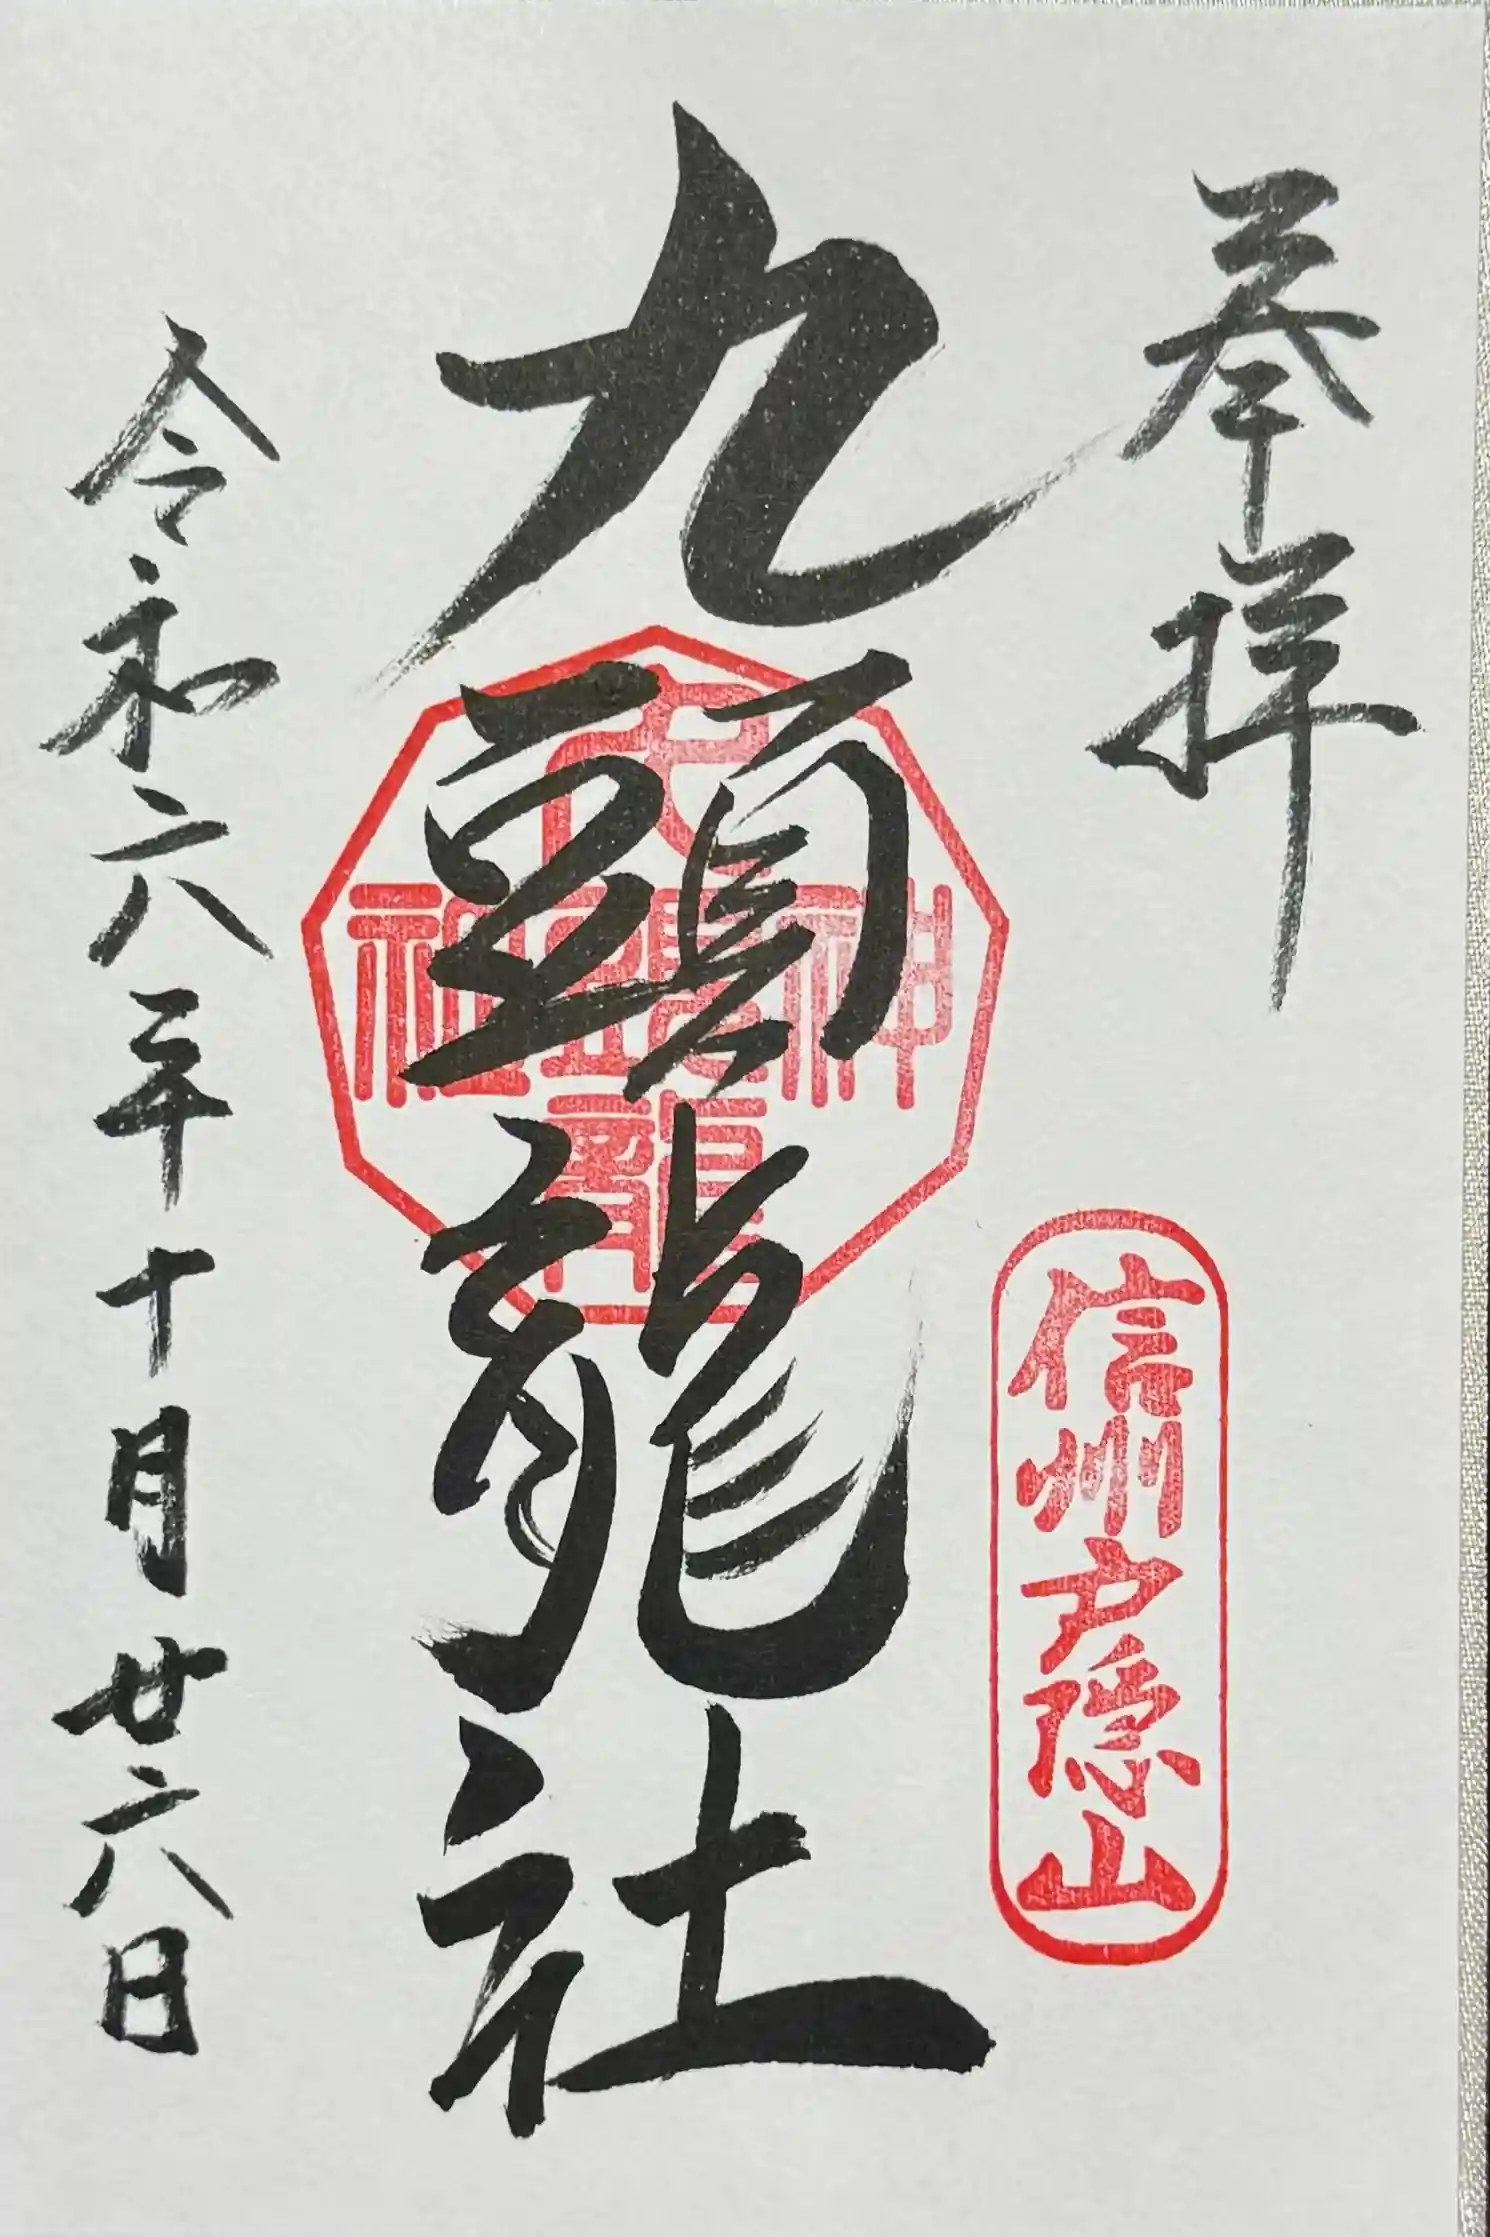 奉拝
信州戸隠山
九頭龍社
九頭龍
神社
令和六年十月廿六日